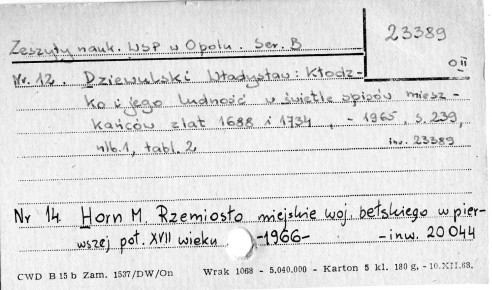 23389
Zeszyty nauk. WSP w Opolu. Ser. B
OII
Nr. 12. Dziewulski Władysław: Kłodz-
ko i jego ludność w świetle spisów miesz-
kańców z lat 1688 i 1734, - 1965, s. 239,
nlb. 1, tabl. 2 inw. 23389
Nr 14 Horn M. Rzemiosło miejskie woj. bełskiego w pier-
wszej poł. XVII wieku -1966- -inw. 20044
CWD B 15 b Zam. 1537/DW/On Wrak 1068 - 5.040.000 - Karton 5 kl. 180 g. - 10.XII.68.